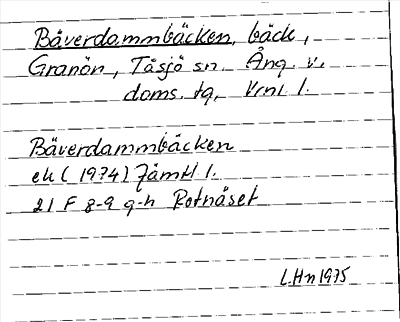 Bäverdammbäcken, bäck,
Granön, Tåsjö sn. Ång. v.
doms. tg, Vrnl l.
Bäverdammbäcken
ek (1974) Jämtl l.
21 F 8-9 g-h Rotnäset
L.Hn 1975